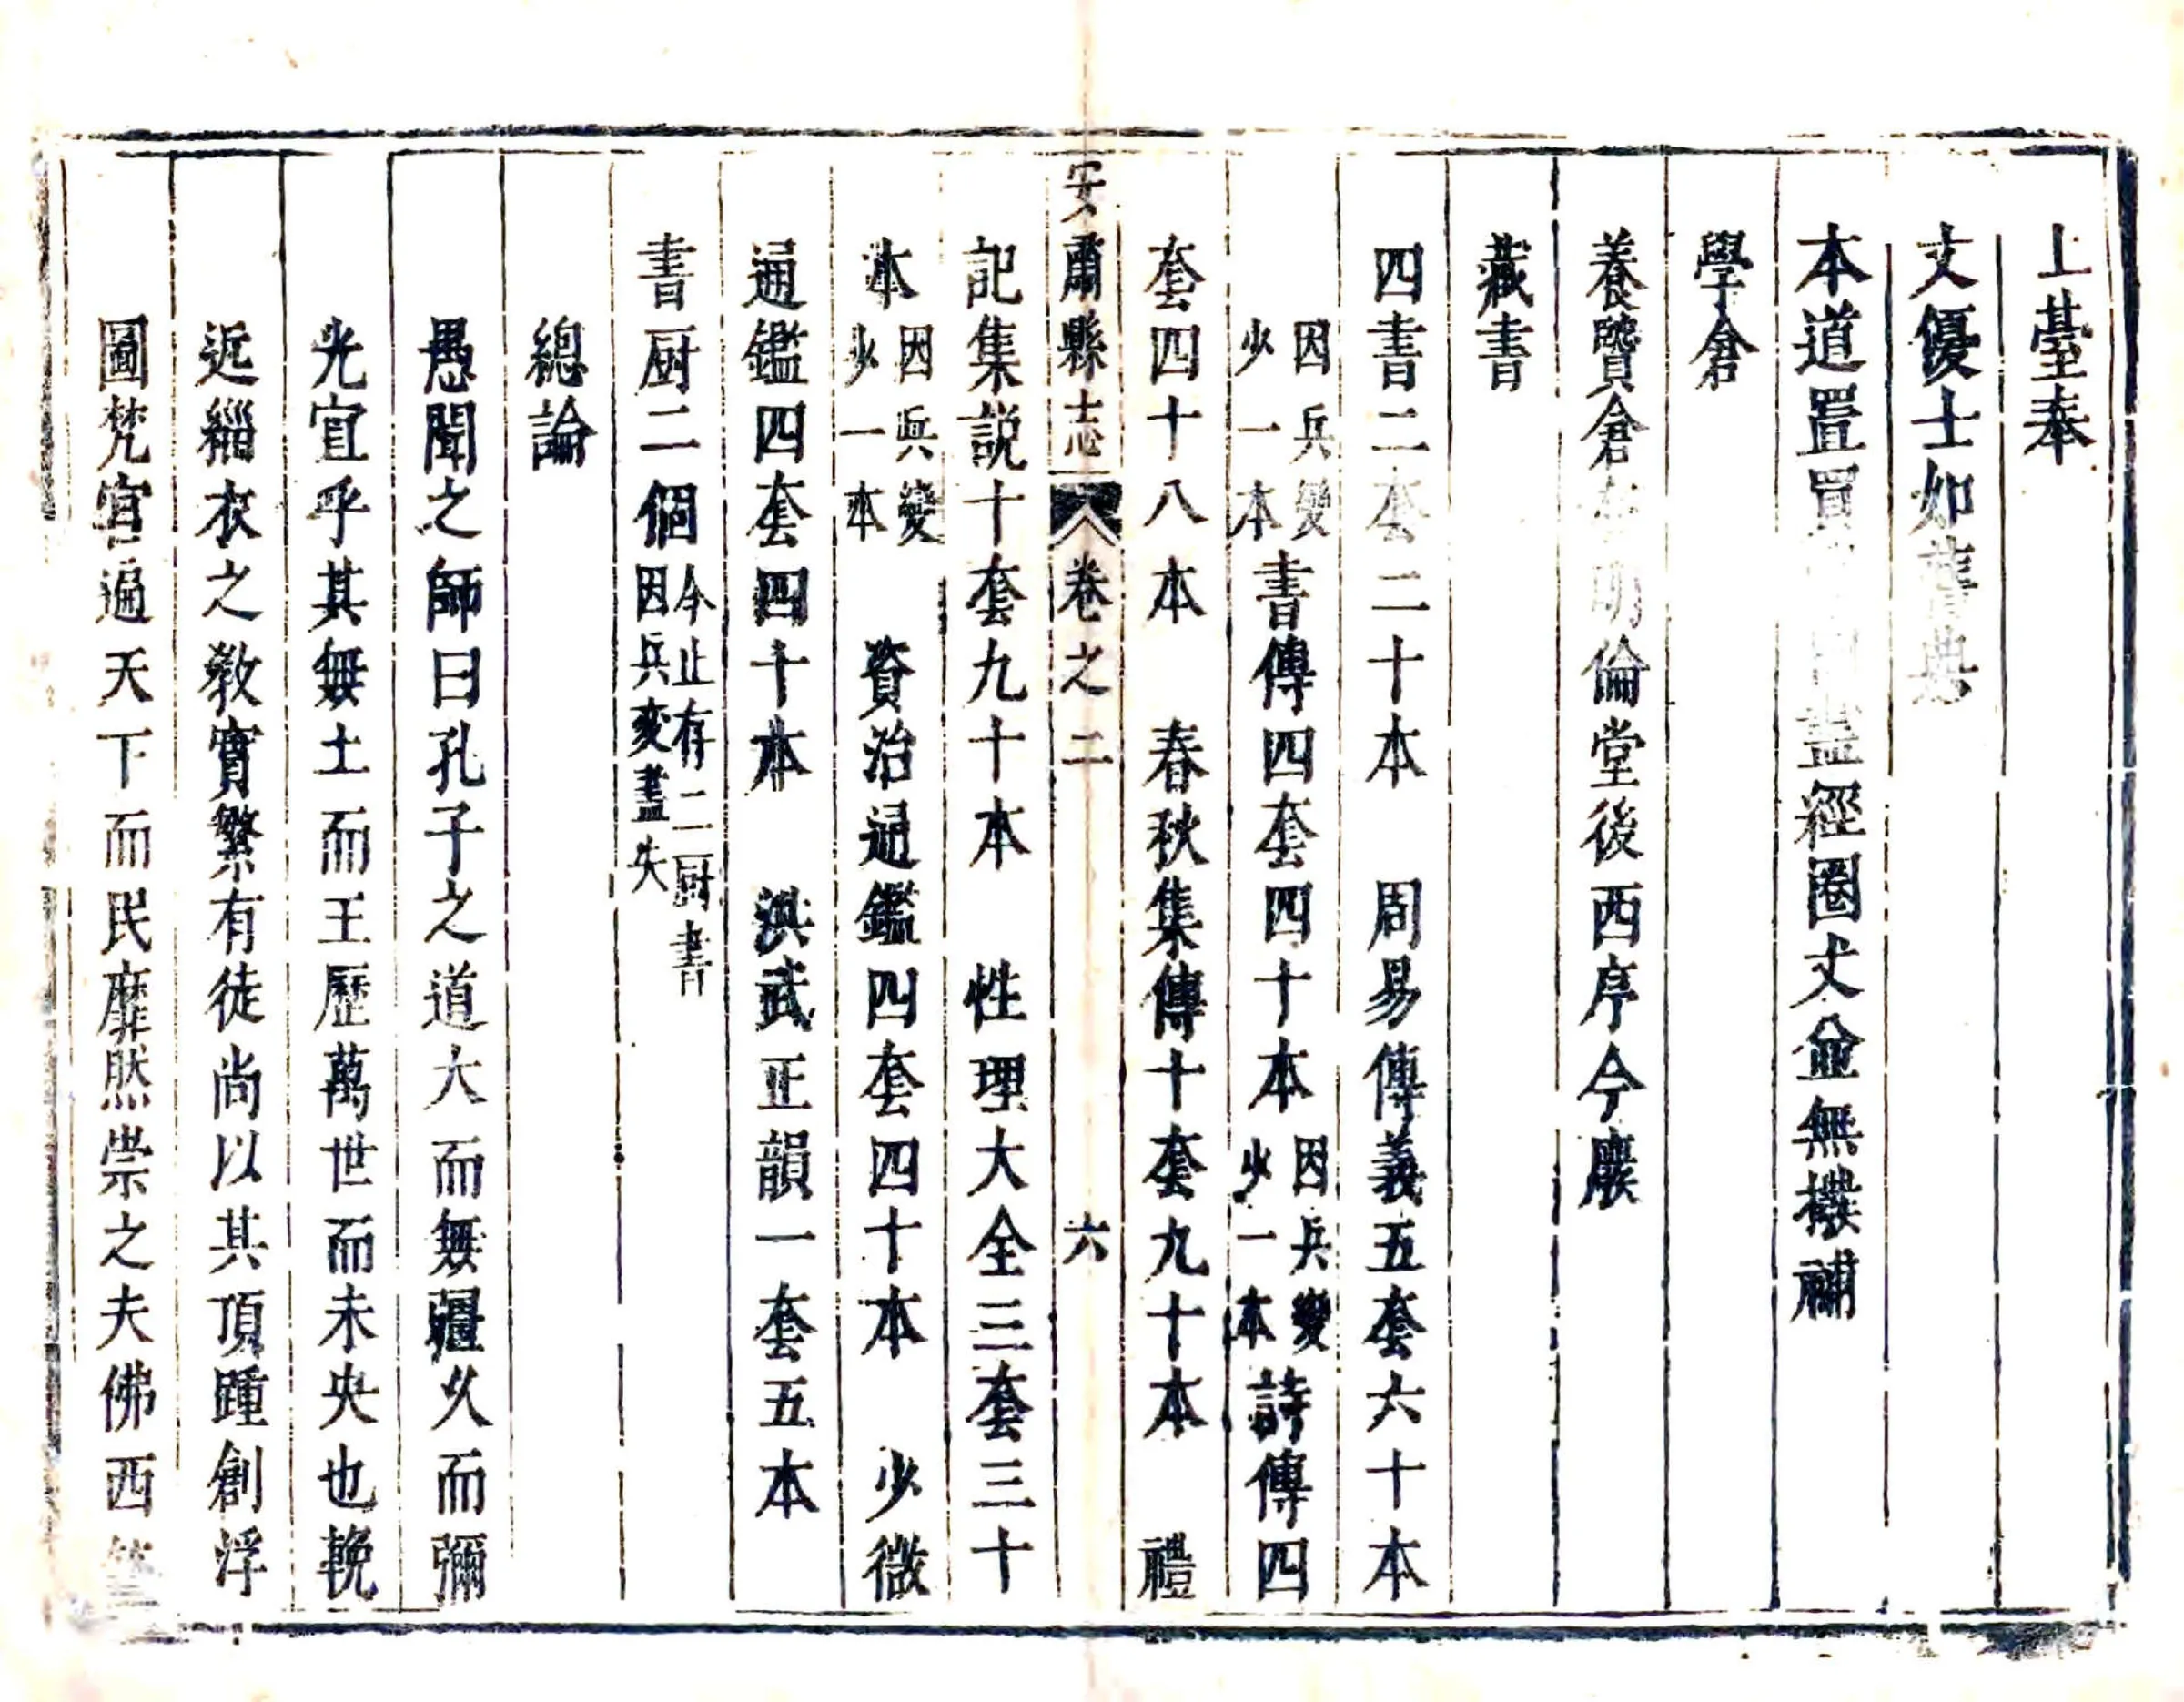 上臺奉
文優士如舊典
本道置買盡經圈丈金無撥補
學倉
養贒倉明倫堂後西序今廢
藏書
四書二套二十本　周易傳義五套六十本
因兵變少一本書傳四套四十本因兵變少一本詩傳四
套四十八本　春秋集傳十套九十本　禮
安肅縣志　卷之二　六
記集説十套九十本　性理大全三套三十
本因兵變少一本　資治通鑑四套四十本　少微
通鑑四套四十本　洪武正韻一套五本
書厨二個今止存二厨書因兵变盡失
總論
愚聞之師曰孔子之道大而無疆久而彌
光宜乎其無土而王歷萬世而未央也輓
近緇衣之教實繁有徒尚以其頂踵創浮
圖梵宫遍天下而民靡然崇之夫佛西竺